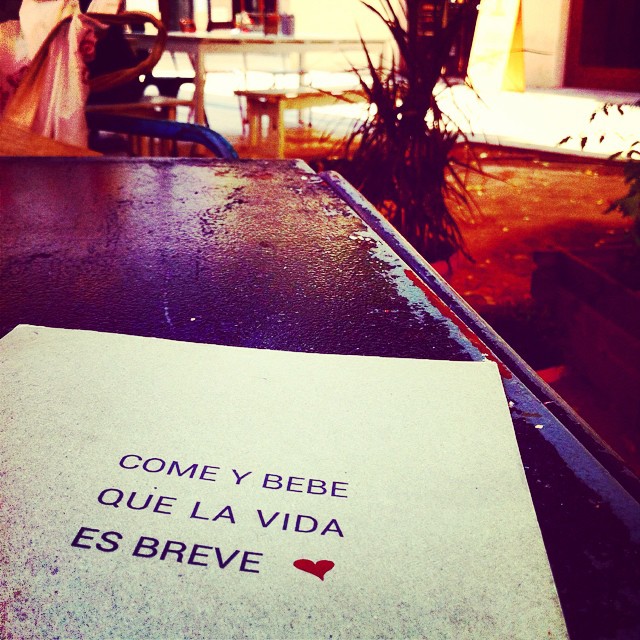 COME Y BEBE
QUE LA VIDA
ES BREVE